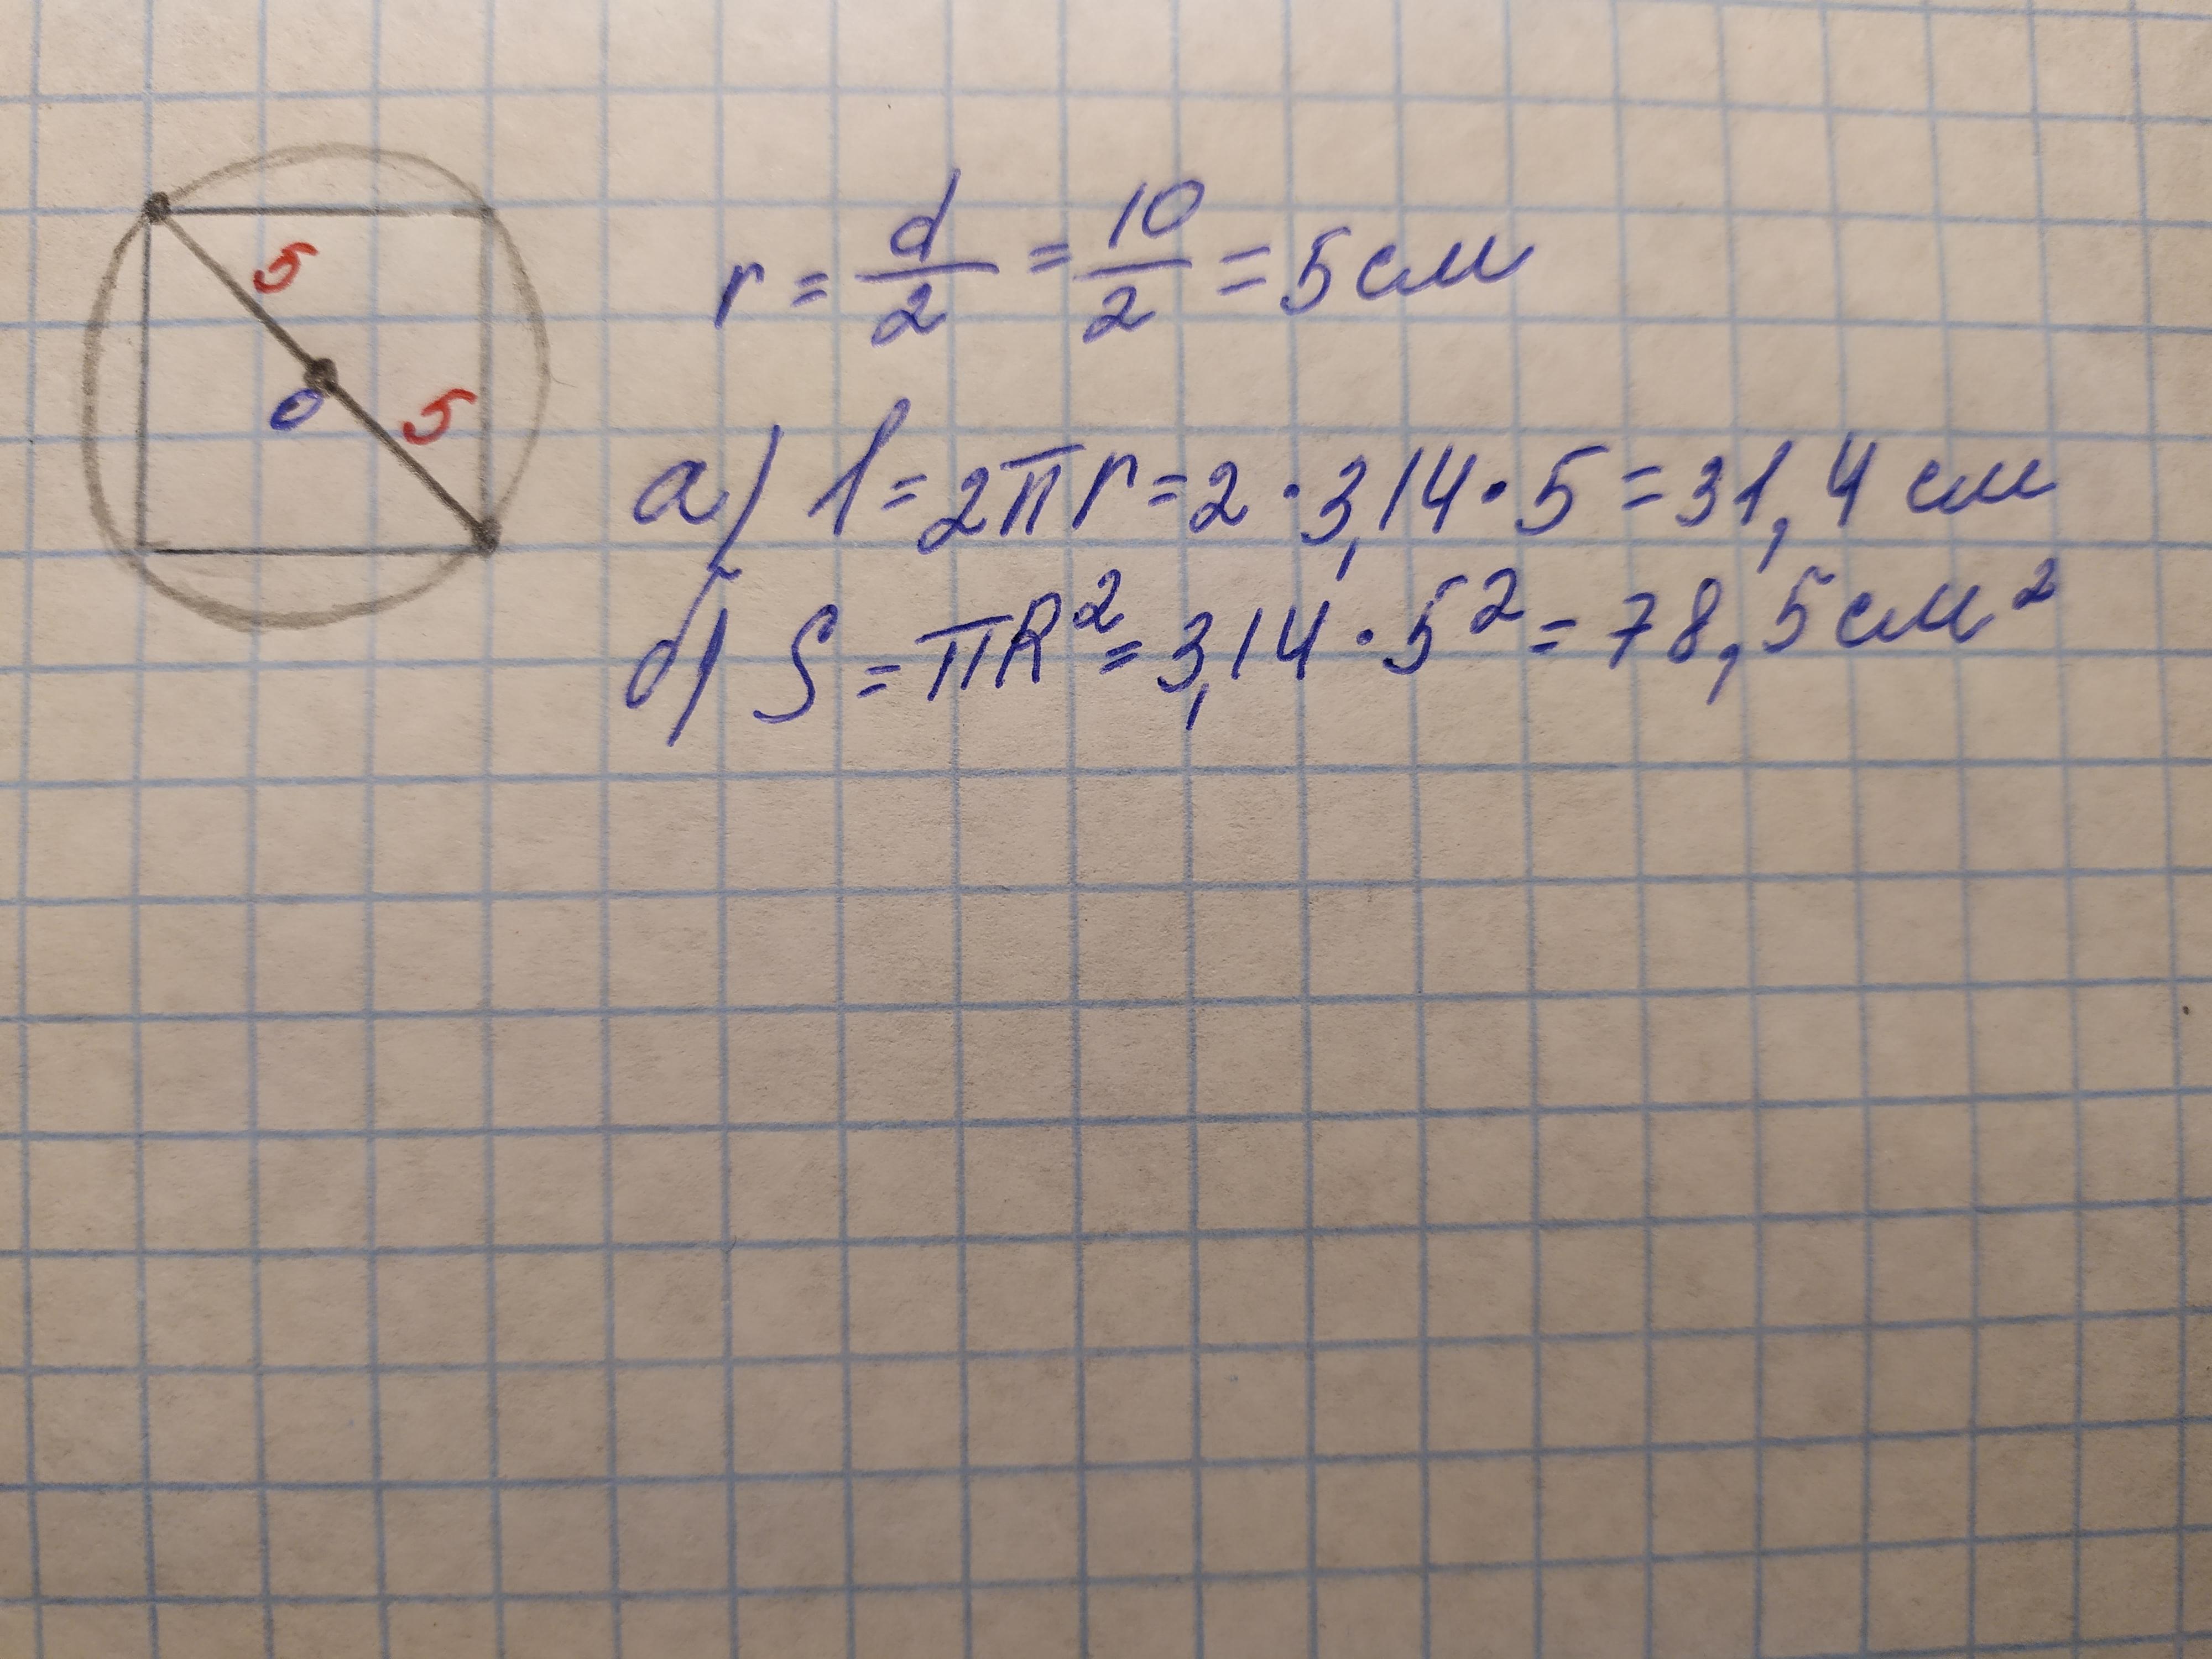 5
O
5
r = d/2 = 10/2 = 5 см
а) l = 2πr = 2 · 3,14 · 5 = 31,4 см
б) S = πR² = 3,14 · 5² = 78,5 см²